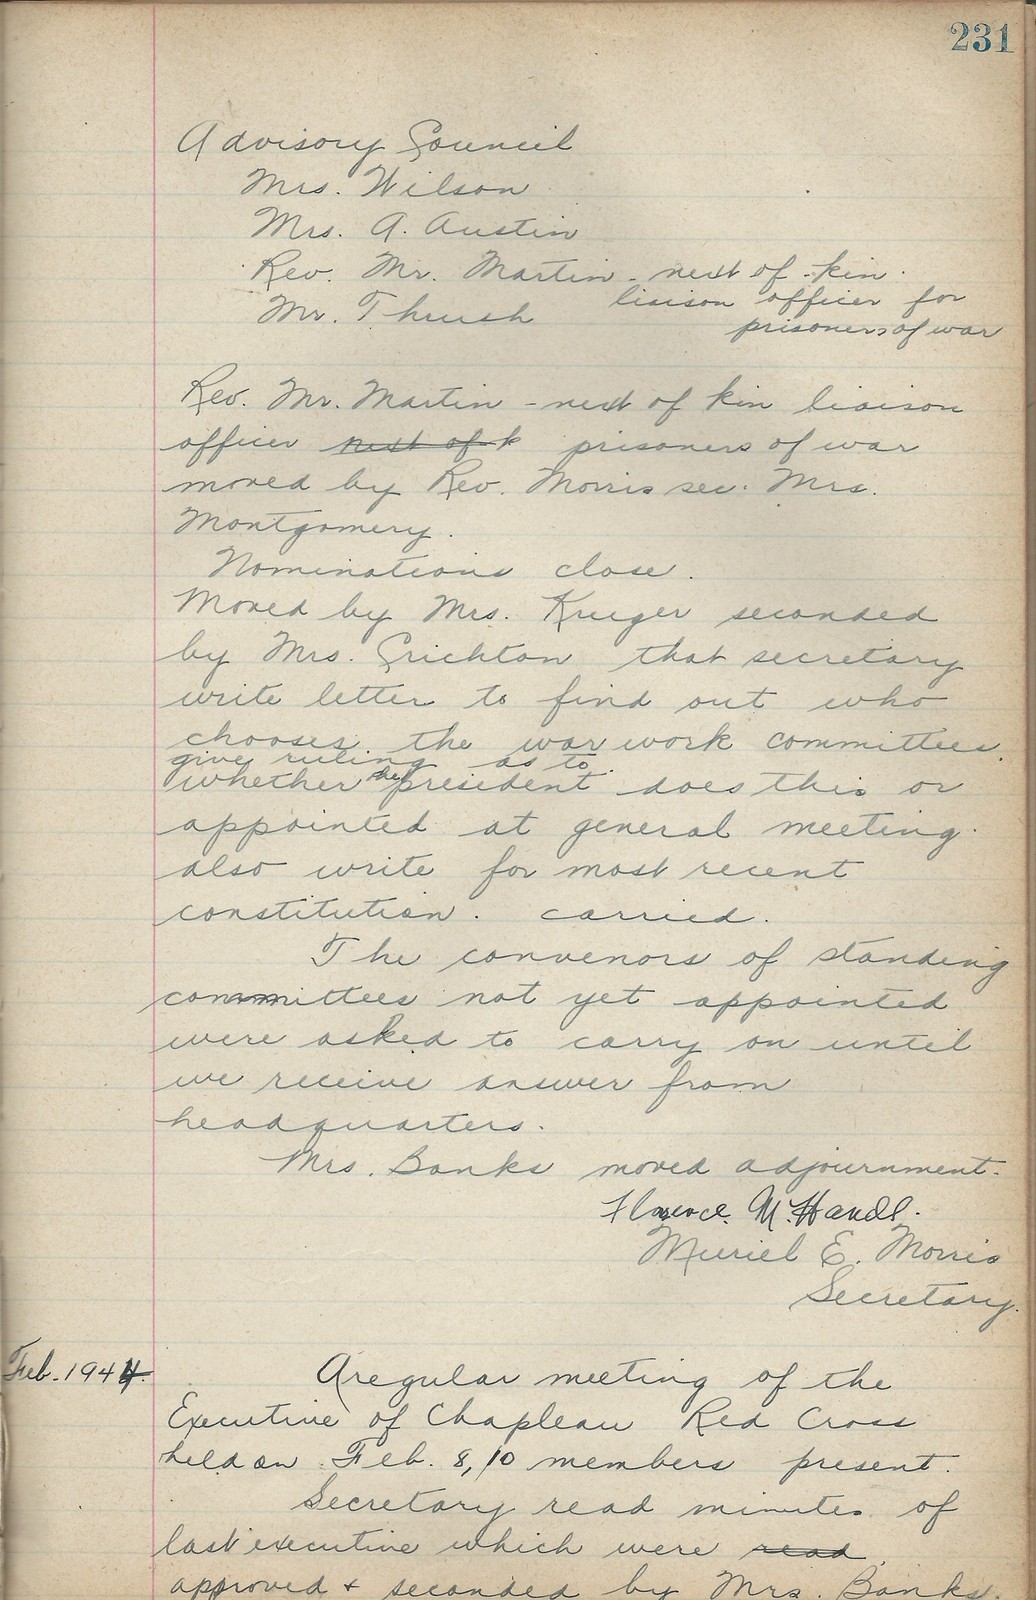 231
Advisory Council
Mrs. Wilson
Mrs. A. Austin
Rev. Mr. Martin - next of kin.
liaison officer for
Mr. Thrush
prisoners of war
Rev. Mr. Martin - next of kin liaison
officer next of k prisoners of war
moved by Rev. Morris sec. Mrs.
Montgomery.
Nominations close.
Moved by Mrs. Krueger seconded
by Mrs. Crichton that secretary
write letter to find out who
chooses the war work committees.
give ruling as to
whether the president does this or
appointed at general meeting.
also write for most recent
constitution. carried.
The convenors of standing
committees not yet appointed
were asked to carry on until
we receive answer from
headquarters.
Mrs. Banks moved adjournment.
Florence M.
Muriel E. Morris
Secretary.
Feb. 1944. A regular meeting of the
Executive of Chapleau Red Cross
held on Feb. 8, 10 members present.
Secretary read minutes of
last executive which were read
approved + seconded by Mrs. Banks.